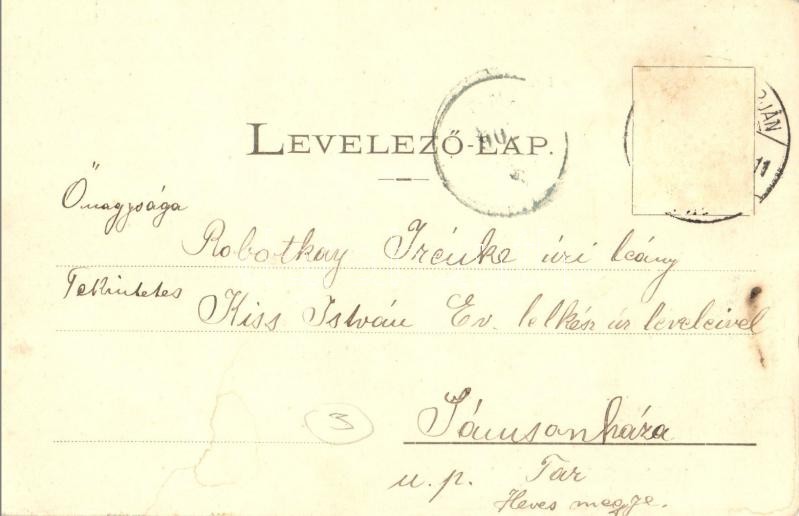 LEVELEZŐ-LAP.
JÁN
11
Őnagysága
Robotkay Irénke úri leány
Tekintetes
Kiss István Ev. lelkész úr leveleivel
Sámsonháza
3
u. p. Tar
Heves megye.